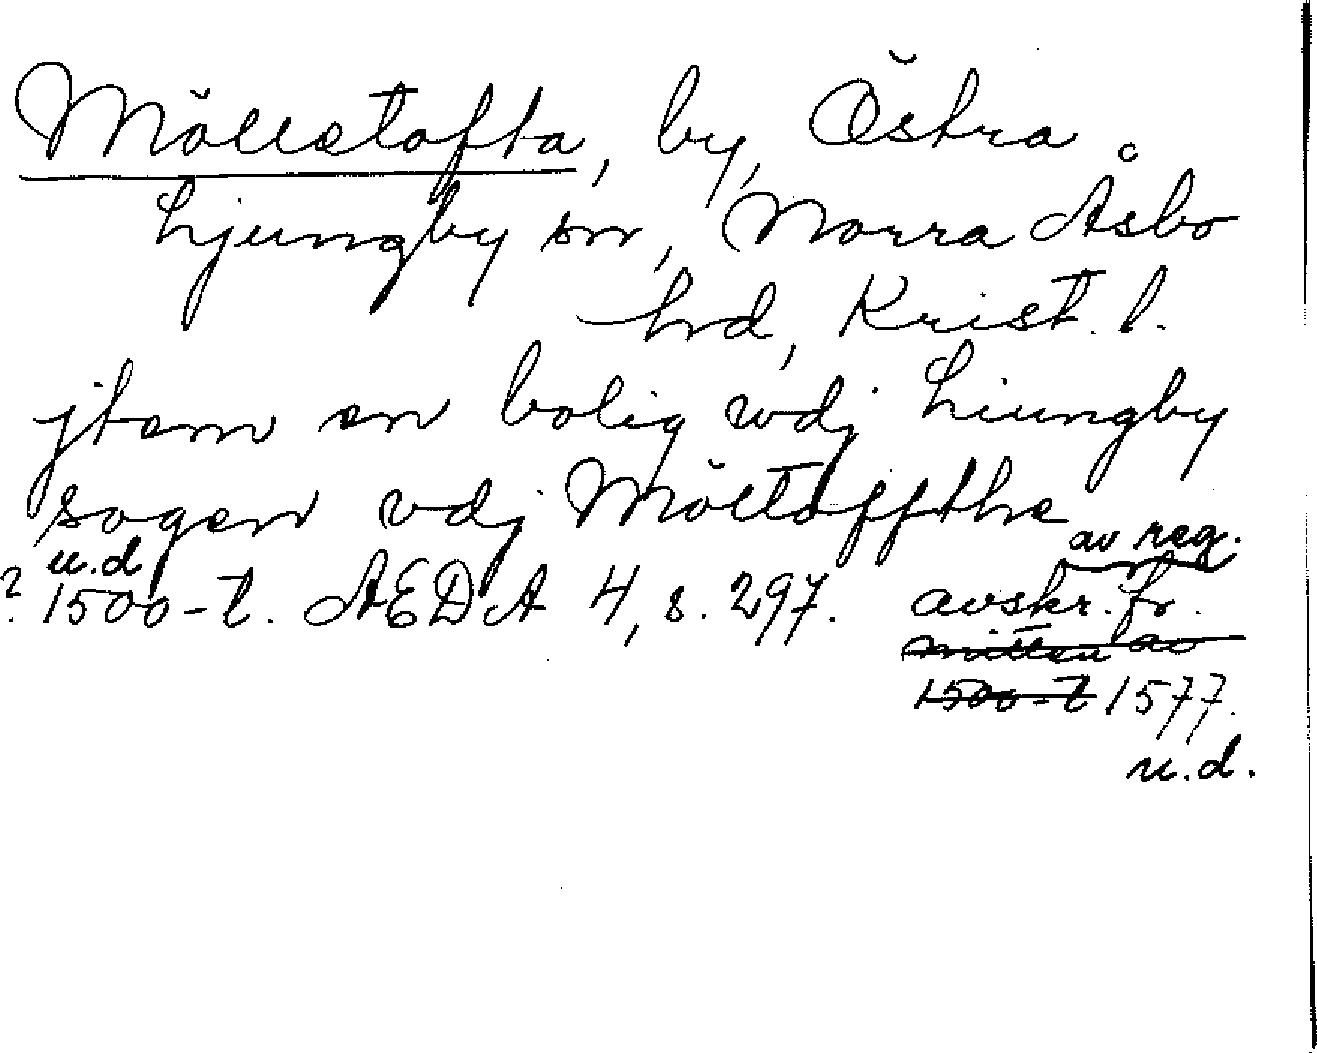 Möllstofta, by, Östra
Ljungby sn, Norra Åsbo
hd, Krist. l.
jtem en bolig wdj Liungby
sogen vdj Mölltoffthe
u.d
? 1500-t. AEDA 4, s. 297.
av reg.
avskr. fr.
mitten av
1500-t 1577.
u.d.